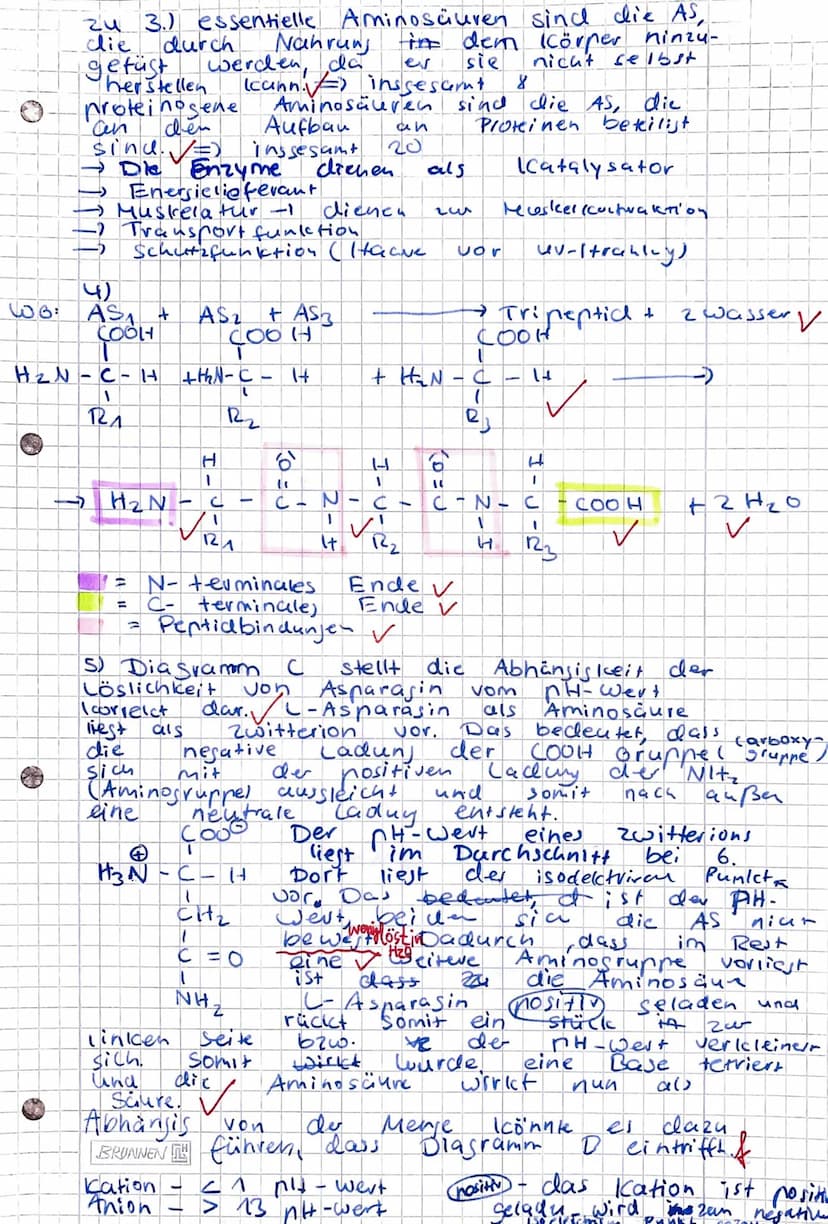 zu 3.) essentielle Aminosäuren sind die AS,
die durch Nahrung in dem Körper hinzu-
gefügt werden, da er sie nicht selbst
herstellen kann. => insgesamt 8
proteinogene Aminosäuren sind die AS, die
an den Aufbau an Proteinen beteiligt
sind. => insgesamt 20
→ Die Enzyme dienen als Katalysator
→ Energielieferant
→ Muskelatur → dienen zur Muskelkontraktion
→ Transportfunktion
→ Schutzfunktion (Haare vor UV-Strahlung)
4)
WG: AS1 + AS2 + AS3 → Tripeptid + 2 Wasser
COOH COOH COOH
H2N - C - H + H2N - C - H + H2N - C - H →
R1 R2 R3
H O H O H
→ H2N - C - C - N - C - C - N - C - COOH + 2 H2O
R1 H R2 H R3
= N-terminales Ende
= C-terminales Ende
= Peptidbindungen
5) Diagramm C stellt die Abhängigkeit der
Löslichkeit von Asparagin vom pH-Wert
korrekt dar. L-Asparagin als Aminosäure
liegt als Zwitterion vor. Das bedeutet, dass
die negative Ladung der COOH Gruppe (Carboxy-
gruppe)
sich mit der positiven Ladung der NH2
(Aminogruppe) ausgleicht und somit nach außen
eine neutrale Ladung entsteht.
COO⊖ Der pH-Wert eines Zwitterions
liegt im Durchschnitt bei 6.
⊕
H3N - C - H Dort liegt der isoelektrische Punkt
vor. Das bedeutet, d ist der pH-
CH2 Wert, bei den sich die AS nicht
wenig löst in H2O
bewegt. Dadurch, dass im Rest
C = O eine weitere Aminogruppe vorliegt
ist dass die Aminosäure
NH2 L-Asparagin positiv geladen und
rückt somit ein Stück zur
linken Seite bzw. der pH-Wert verkleinert
sich. Somit wirkt wurde eine Base
und die Aminosäure wirkt nun als
Säure.
Abhängig von der Menge könnte es dazu
führen, dass Diagramm D eintrifft. f
BRUNNEN
Kation - < 1 pH-Wert positiv - das Kation ist positiv
Anion - > 13 pH-Wert wird zum negativ